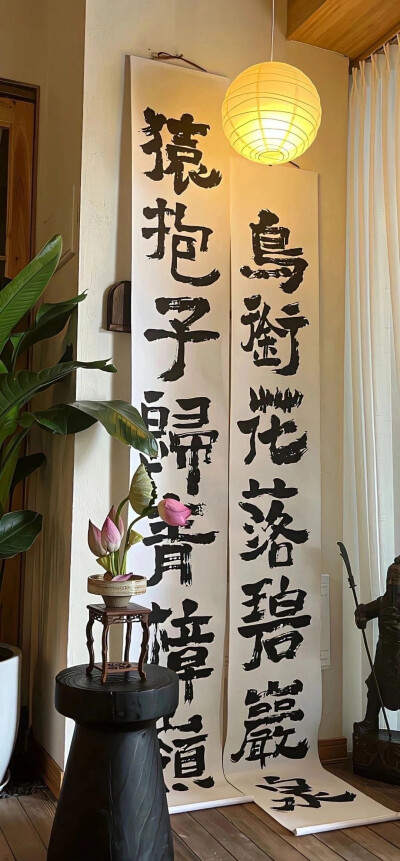 鳥銜花落碧巖泉
猿抱子歸青嶂嶺